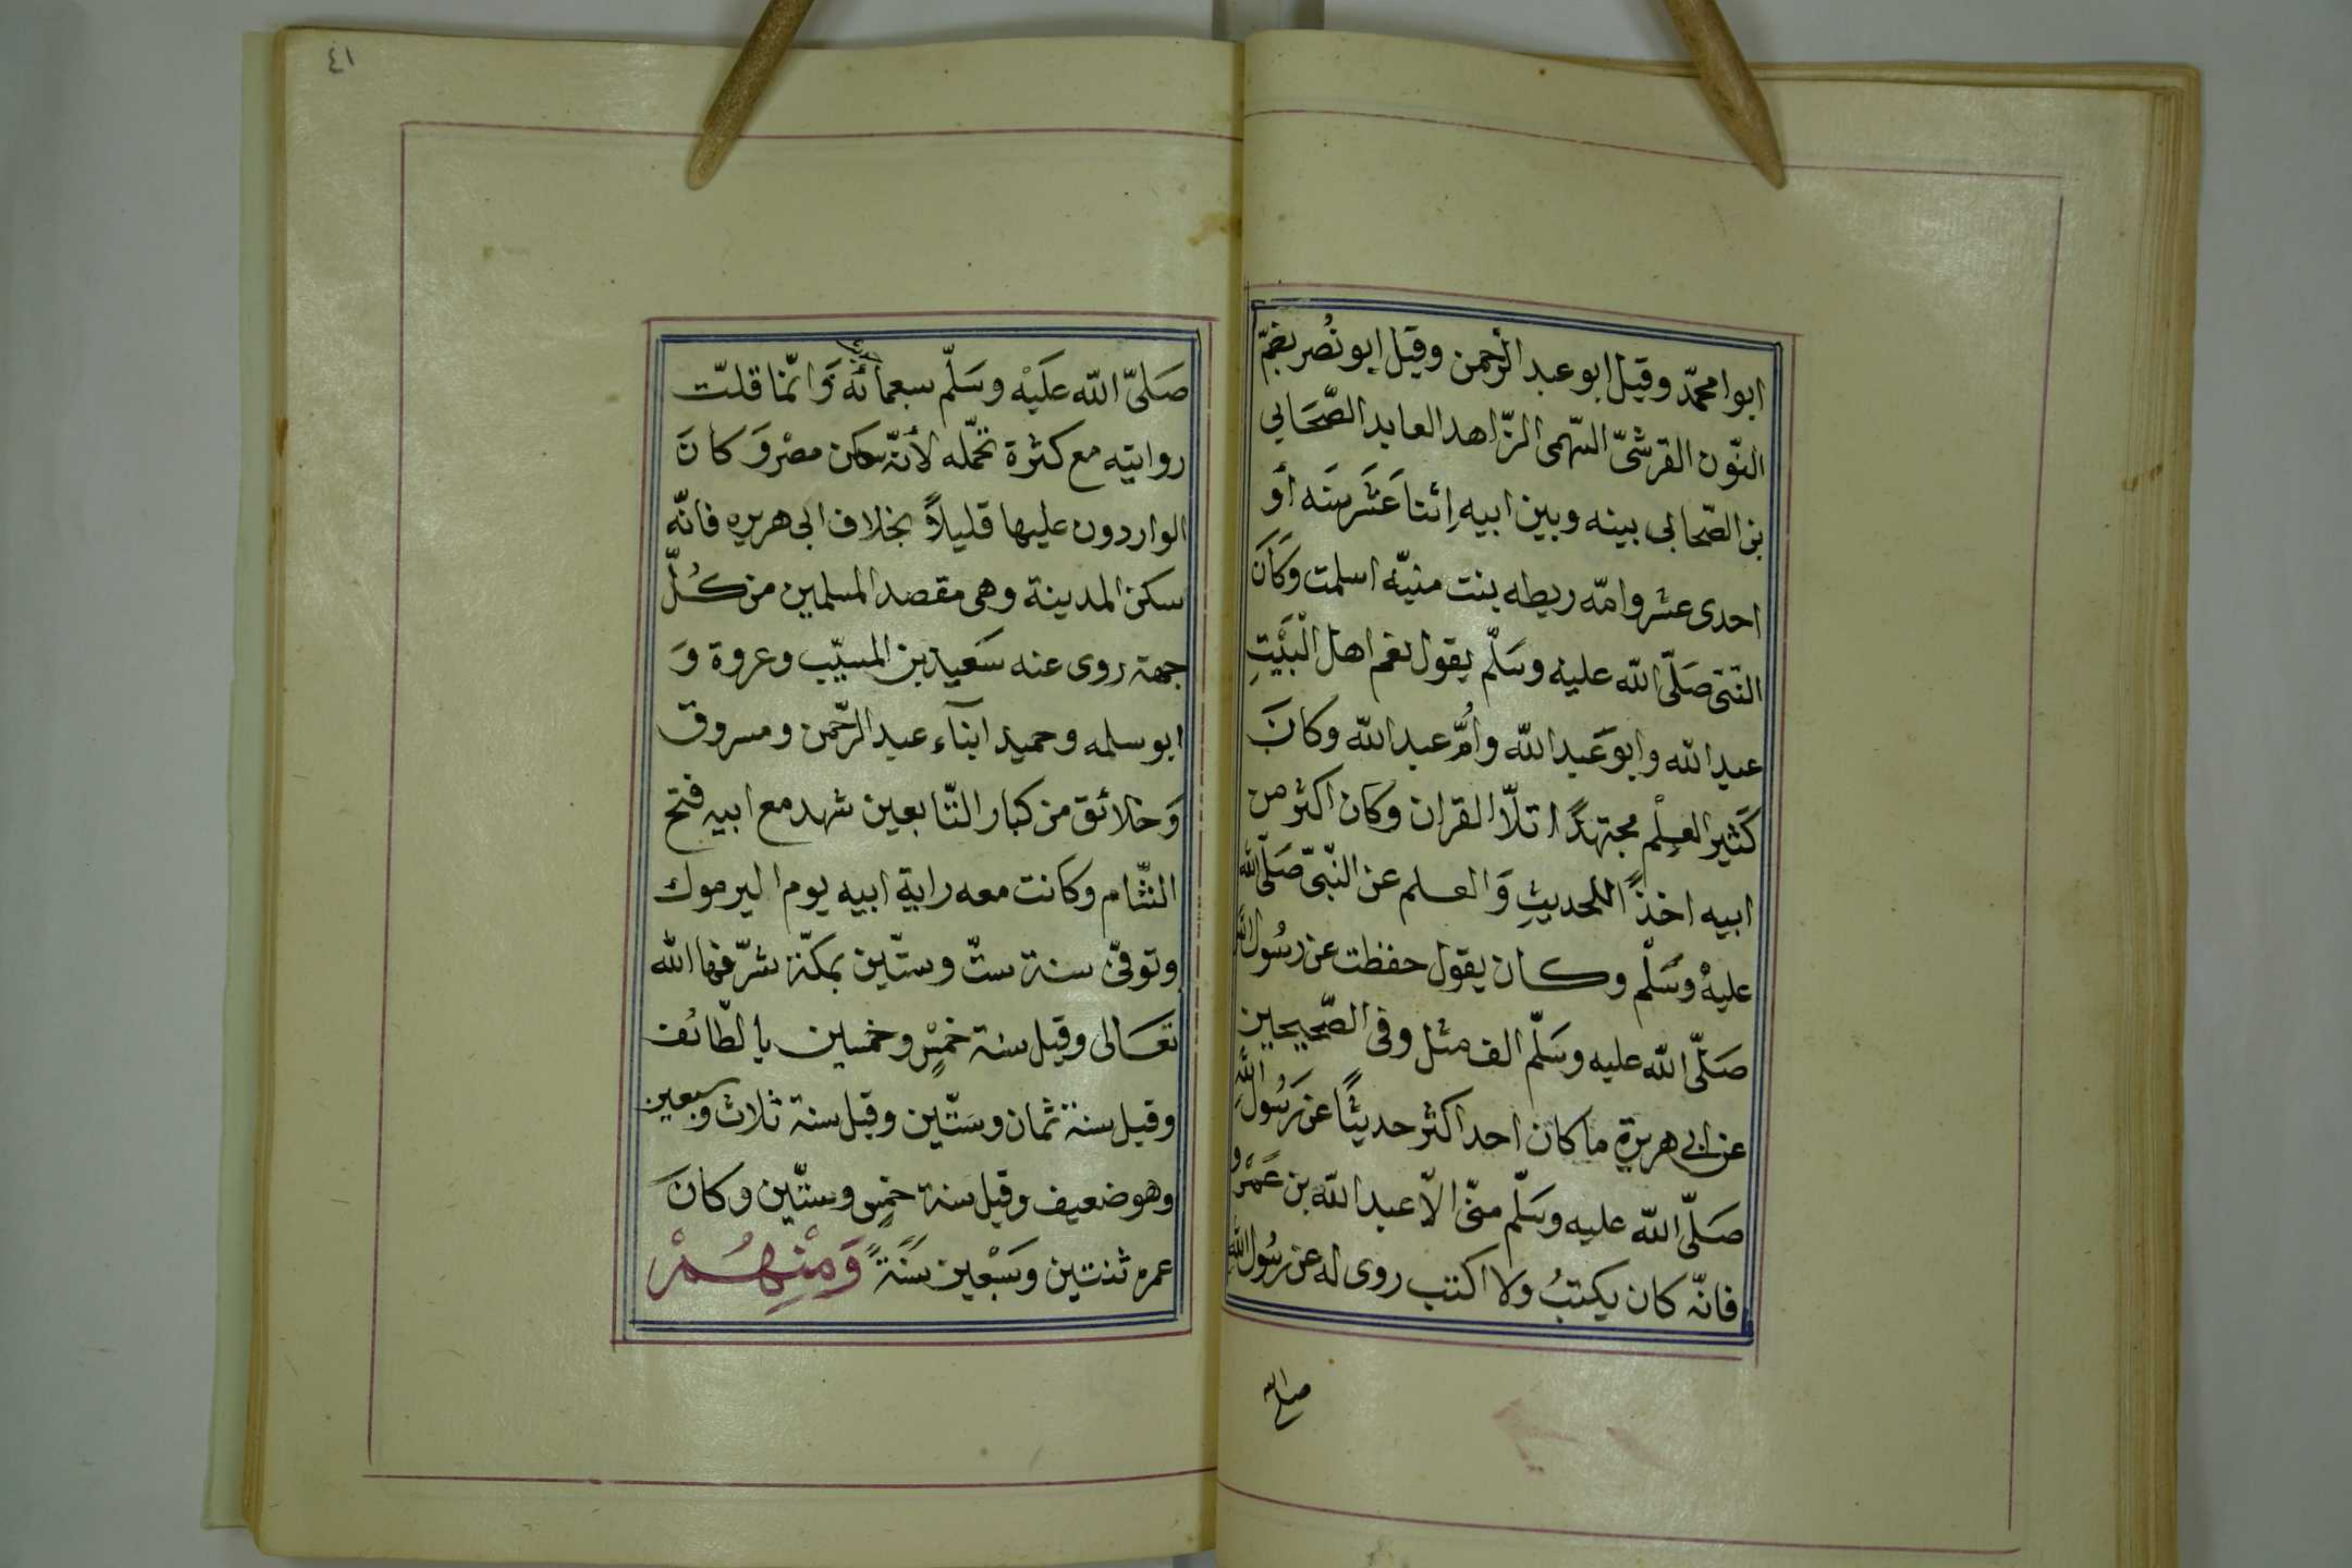 ابوا محمّد وقيل ابو عبد الرّحمن وقيل ابو نُصر بضمّ
النّون القرشىّ السّهمى الزّاهد العابد الصّحَابي
بن الصّحابي بينه وبين ابيه اِثنتا عَشَر سَنَه أو
احدى عشر وامّه ريطه بنت منيّه اسلمت وَكَانَ
النّبى صَلّى اللّه عليه وسَلّم يقول نعم اهل الْبَيْتِ
عبد اللّه وابو عَبد اللّه وأُمُّ عبد اللّه وكانَ
كَثير العِلْم مجتهدًا تلّا القران وكان اكثر من
ابيه اخذًا للحديثِ وَ العلم عن النّبىّ صَلّى اللّه
عليهْ وسَلّم وكان يقول حفظت عن رسُول اللّه
صَلّى اللّه عليه وسَلّم الف مثل وفى الصّحيحين
عن ابى هريرةِ ما كان احد اكثر حديثًا عن رَسُولِ اللّهِ
صَلّى اللّه عليه وسَلّم منّى الاّ عبد اللّه بن عَمْرو
فانّه كان يكتبُ ولا اكتب روى له عن رسُول اللّه
٤١
صَلىّ اللّه عَلَيْه وسَلّم سبعمائه وَانّما قلّت
روايته مع كثرة تحمّله لأنّه سكن مصْر وَكانَ
الواردون عليها قليلاً بخلاف ابى هريره فانّه
سكن المدينة وهى مقصد المسلمين من كُلّ
جهة روى عنه سَعيد بن المسيّب وعروة وَ
ابو سلمه وحميد ابنآء عبد الرّحمن ومسروق
وَخلائق من كبار التّابعين شهد مع ابيه فتح
الشّام وكانت معه راية ابيه يوم اليرموك
وتوفىّ سنة ستّ وستّين بمكّة شرّفها اللّه
تعَالى وقيل سنة خمسٍ وخمسين بالطّائف
وقيل سنة ثمان وسَتّين وقيل سنة ثلاث وسبعين
وهو ضعيف وقيل سنة خمسٍ وستّين وكانَ
عمره ثنتين وسَبْعين سَنَةً وَمْنِهُمْ